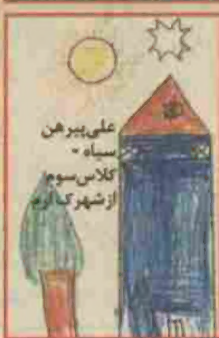 علی پیرهن
سیاه -
کلاس سوم
از شهرک ارم